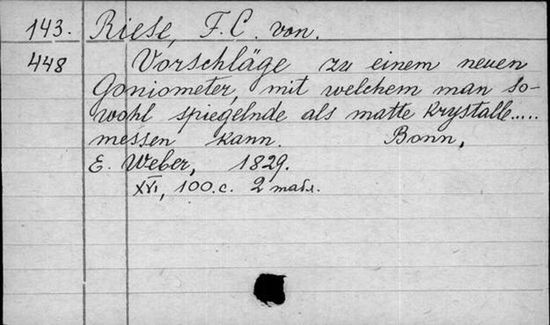 143. Riese, F. C. von.
448 Vorschläge zu einem neuen
Goniometer, mit welchem man so-
wohl spiegelnde als matte Krystalle.....
messen kann. Bonn,
E. Weber, 1829.
XVI, 100 с. 2 табл.